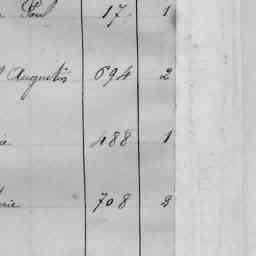 Paul 17 1
Augustin 694 2
ie 488 1
rie 708 2